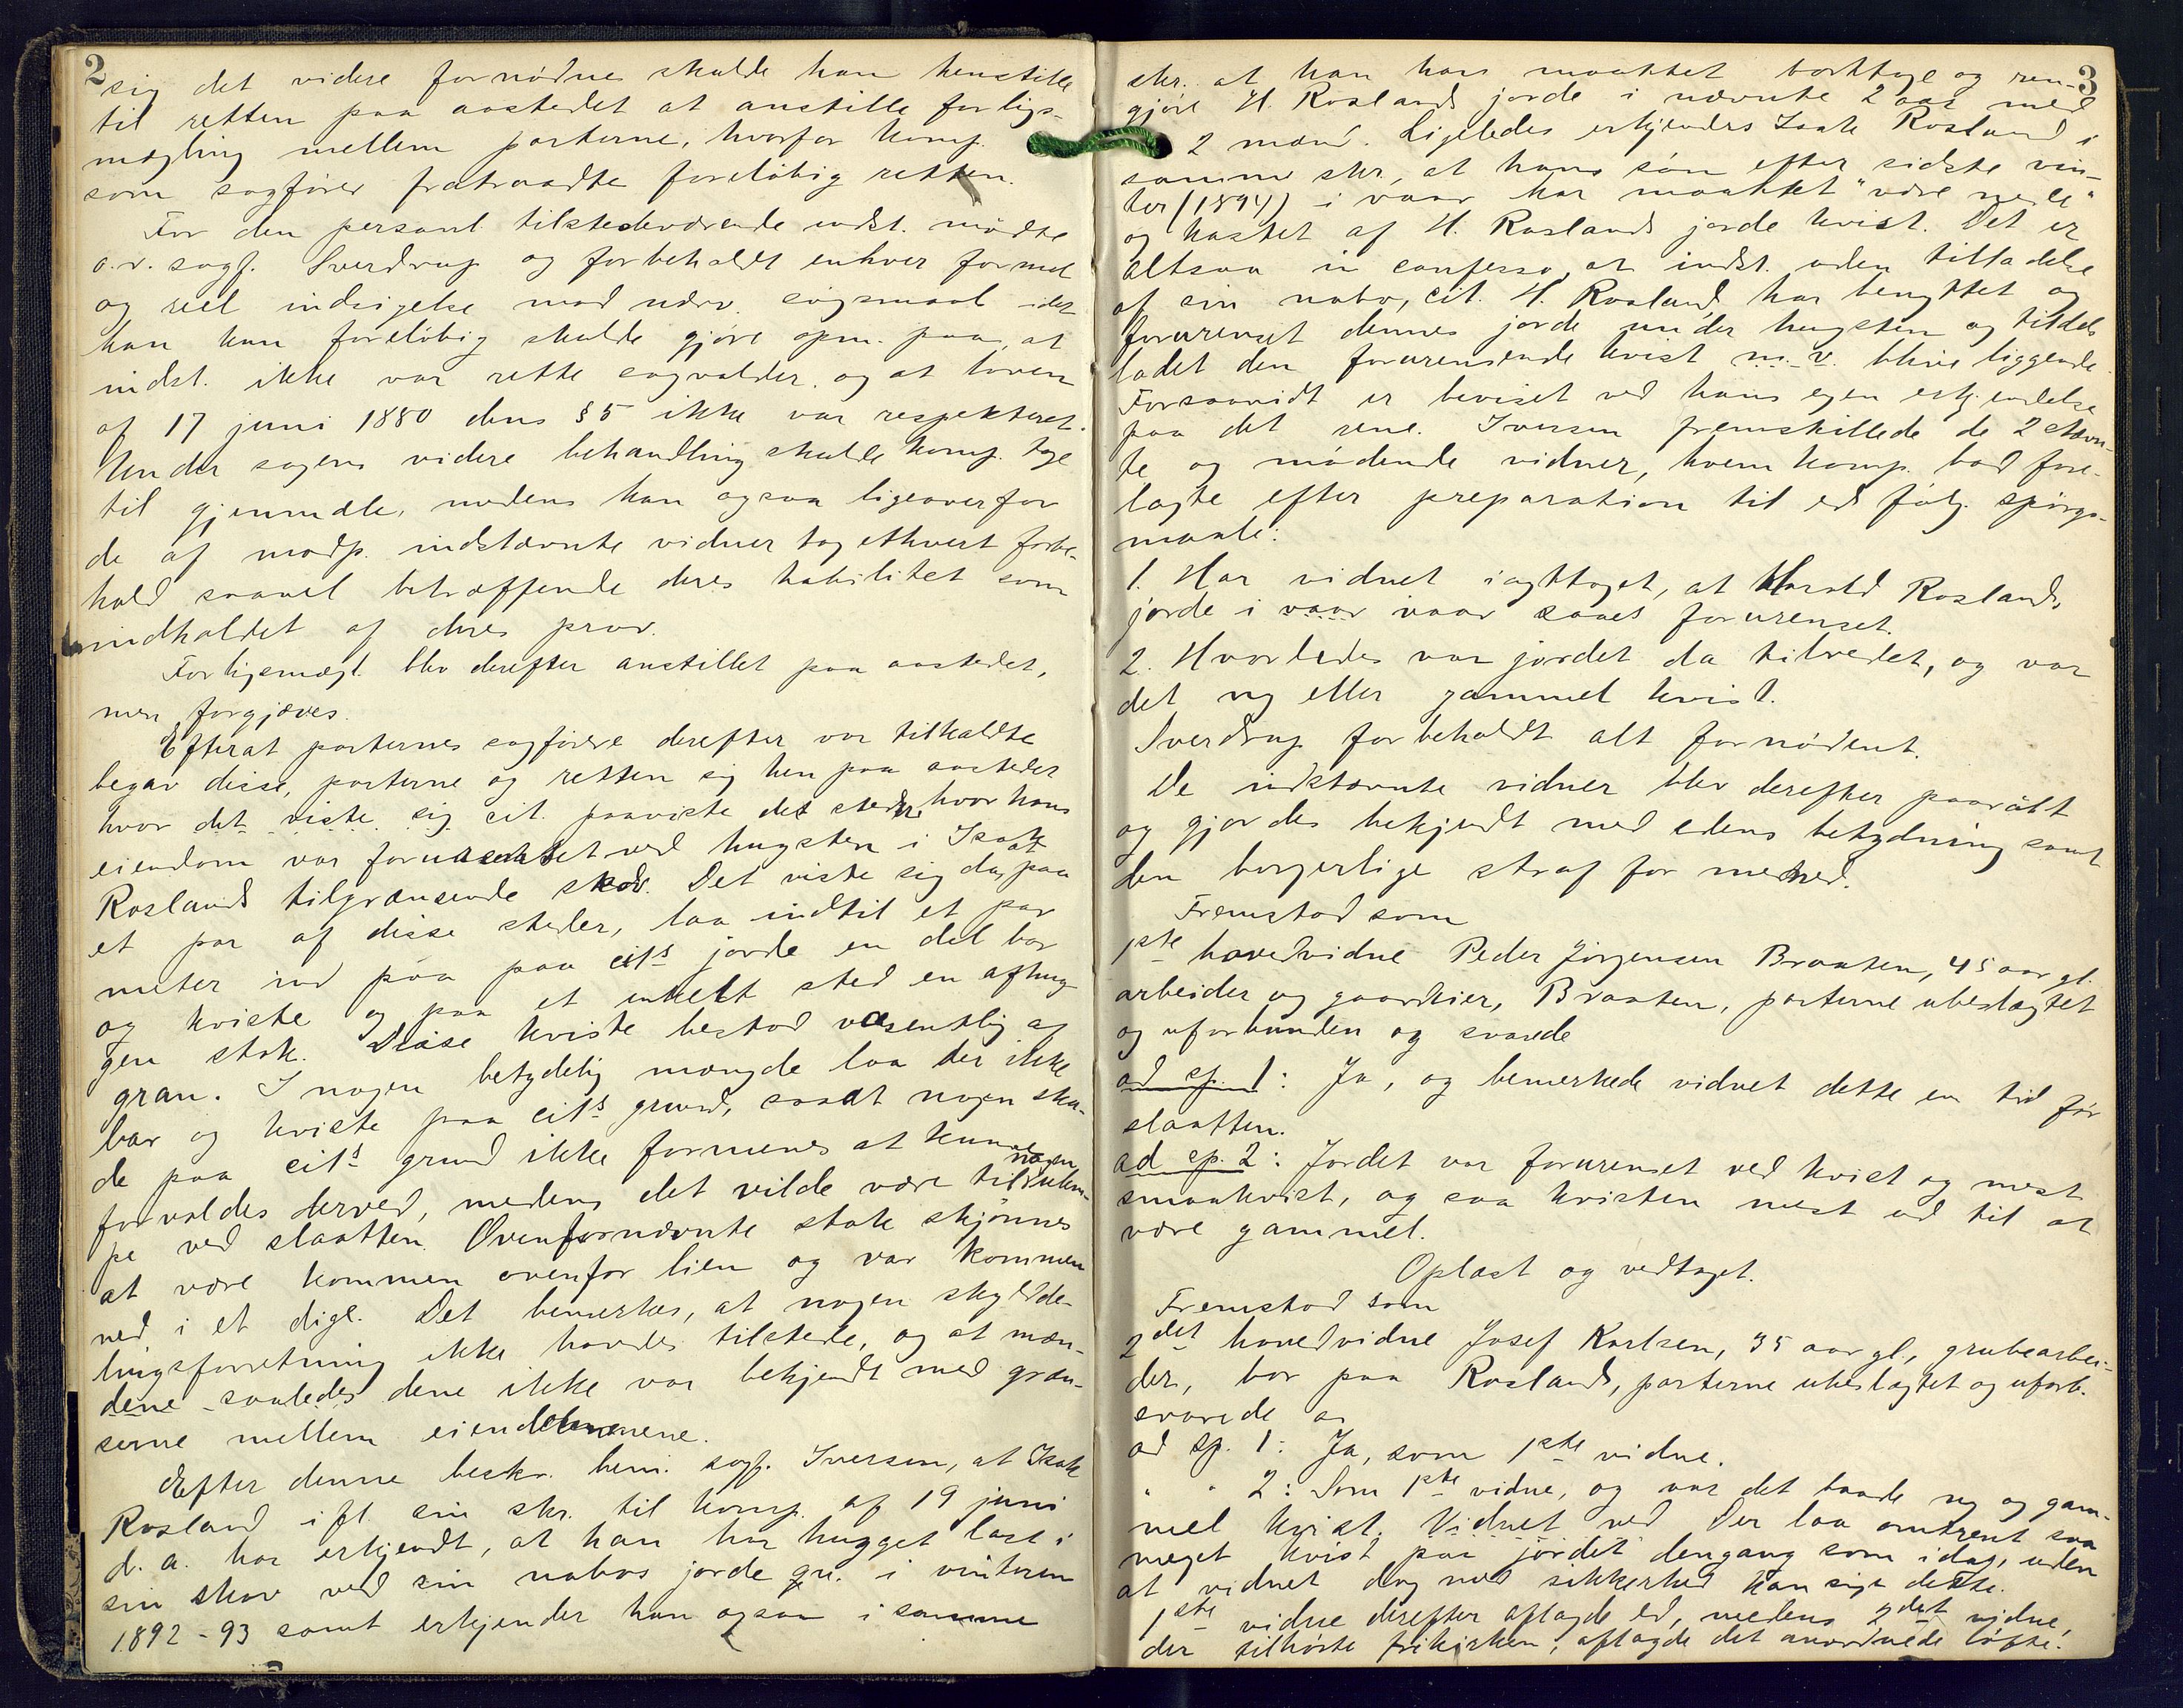 2
sig det videre fornødne skulde han henstille
til retten paa aastedet at anstille forligs-
mægling mellem parterne, hvorfor komp.
som sagfører fratraadte foreløbig retten.
For den personl. tilstedeværende indst. mødte
o.r. sagf. Sverdrup og forbeholdt enhver formel
og reel indsigelse mod nærv. søgsmaal idet
han kun foreløbig skulde gjøre opm. paa, at
indst. ikke var rette sagvolder og at loven
af 17 juni 1880 dens § 5 ikke var respekteret.
Under sagens videre behandling skulde komp. tage
til gjenmæle, medens han ogsaa ligeoverfor
de af modp. indstævnte vidner tog ethvert forbe-
hold saavel betræffende deres habilitet som
indholdet af deres prov.
Forligsmægl. blev derefter anstillet paa aastedet,
men forgjæves.
Efterat parternes sagførere derefter var tilkaldte
begav disse, parterne og retten sig hen paa aastedet
hvor det viste sig cit. paaviste de steder hvor hans
eiendom var forurenset ved hugsten i Isak
Roslands tilgrænsende skov. Det viste sig da, paa
et par af disse steder, laa indtil et par
meter ind paa paa cits jorde en del bar
og kviste og paa et enkelt sted en afhug-
gen stok. Disse kviste bestod væsentlig af
gran. I nogen betydelig mængde laa der ikke
bar og kviste paa cits grund, saaat nogen ska-
de paa cits grund ikke formenes at kunne
forvoldes derved, medens det vilde være til nogen ulem-
pe ved slaatten. Ovenfornævnte stok skjønnes
at være kommen ovenfor lien og var kommen
ned i et dige. Det bemerkes, at nogen skylddel-
lingsforretning ikke havdes tilstede, og at mæn-
dene saaledes dere ikke var bekjendt med græn-
serne mellem eiendommene.
Efter denne beskr. bem. sagf. Iversen, at Isak
Rosland ifl. sin skr. til komp. af 19 juni
d. a. har erkjendt, at han har hugget last i
sin skov ved sin nabos jorde gr. i vinteren
1892-93 samt erkjender han ogsaa i samme
3
skr. at han har maattet borttage og ren-
gjøre H. Roslands jorde i nævnte 2 aar med
2 mænd. Ligeledes erkjendes Isak Rosland i
samme skr, at hans søn efter sidste vin-
ter (1894) i vaar har maattet "være nede"
og kastet af H. Roslands jorde kvist. Det er
altsaa in confesso, at indst. uden tilladelse
af sin nabo, cit. H. Rosland, har benyttet og
forurenset dennes jorde under hugsten og tildels
ladet den forurensende kvist m. v. blive liggende.
Forsaavidt er beviset ved hans egen erkjendelse
paa det rene. Iversen fremstillede de 2 stævn-
te og mødende vidner, hvem komp. bad fore-
lagte efter preparation til ed følg. spørgs-
maale:
1. Har vidnet iagttaget, at Harald Roslands
jorde i vaar vaar saaes forurenset.
2. Hvorledes var jordet da tilredet, og var
det ny eller gammel kvist.
Sverdrup forbeholdt alt fornødent.
De indstævnte vidner blev derefter paaraabt
og gjordes bekjendt med edens betydning samt
den borgerlige straf for mened.
Fremstod som
1ste hovedvidne Peder Jørgensen Braaten, 45 aar gl.
arbeider og gaardeier, Braaten, parterne ubeslægtet
og uforbunden og svarede
ad sp. 1: Ja, og bemerkede vidnet dette en tid før
slaatten.
ad sp. 2: Jordet var forurenset ved kvist og mest
smaakvist, og saa kvisten mest ud til at
være gammel.
Oplæst og vedtaget.
Fremstod som
2det hovedvidne Josef Karlsen, 35 aar gl., grubearbei-
der, bor paa Rosland, parterne ubeslægtet og uforb.
svarede
ad sp. 1: Ja, som 1ste vidne.
" " 2: Som 1ste vidne, og var det baade ny og gam-
mel kvist. Vidnet ved Der laa omtrent saa
meget kvist paa jordet dengang som idag, uden
at vidnet dog med sikkerhed kan sige dette.
1ste vidne derefter aflagde ed, medens 2det vidne,
der tilhørte frikirken, aflagde det anordnede løfte.